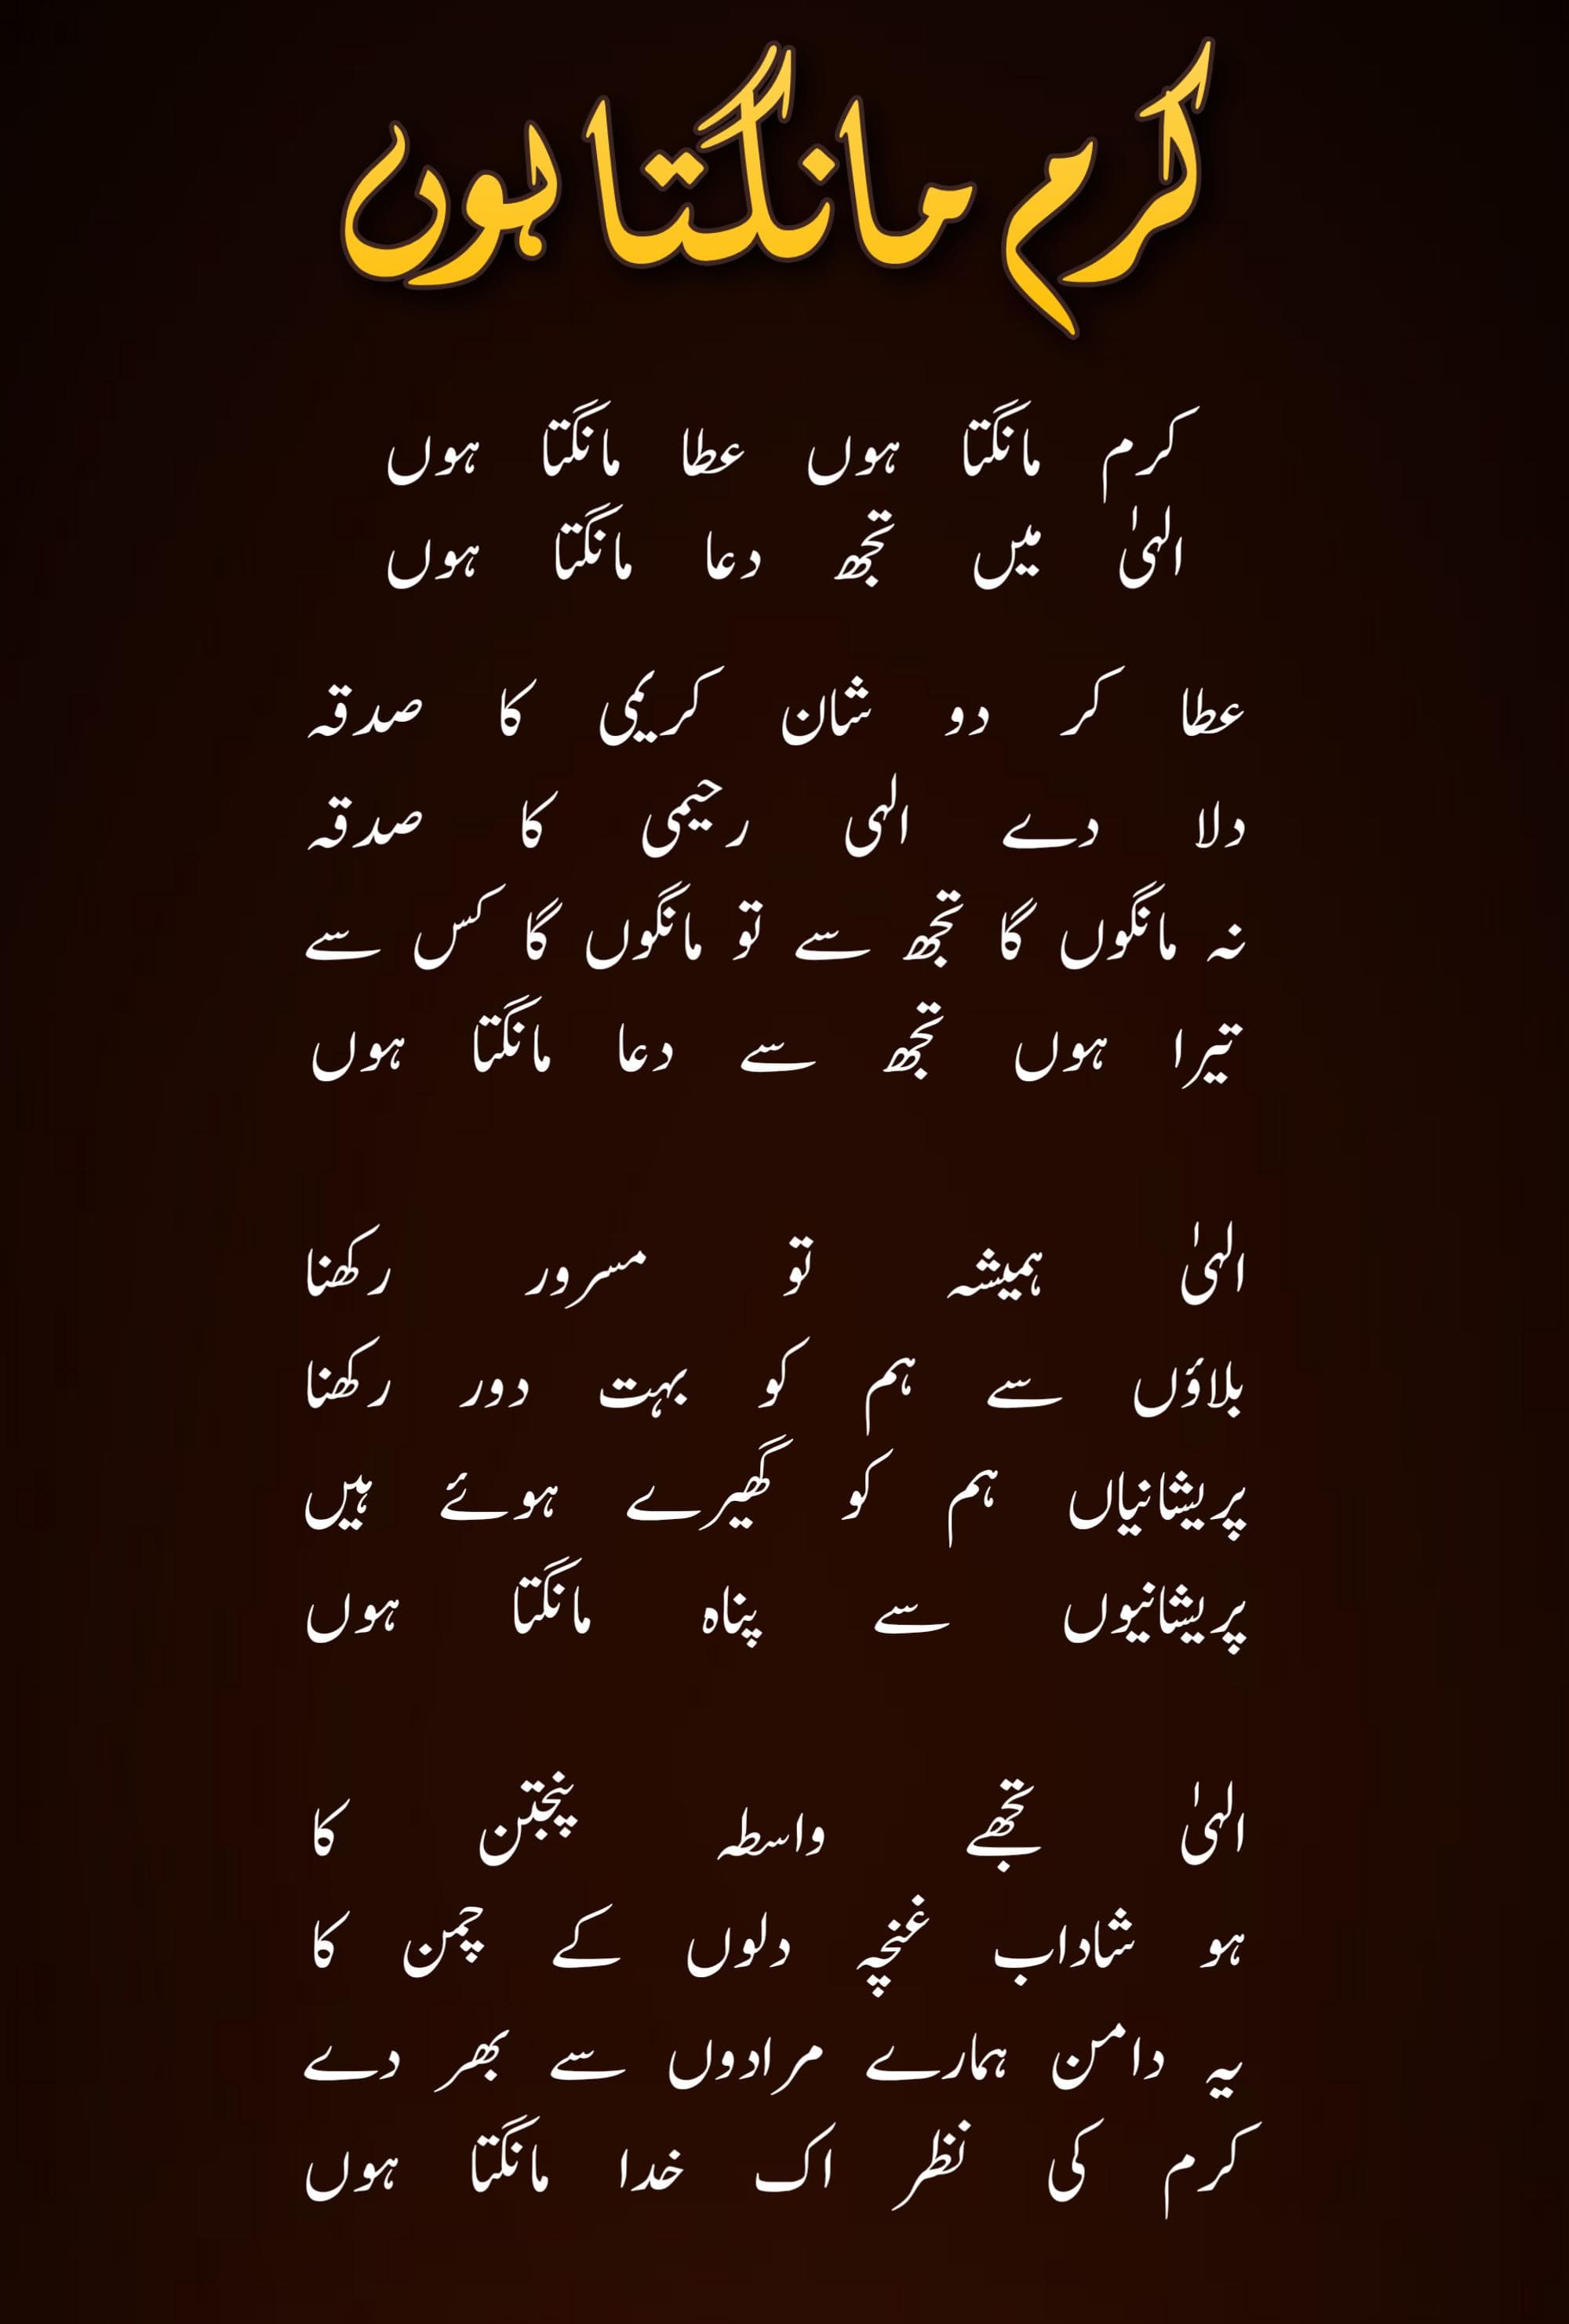 کرم مانگتا ہوں
کرم مانگتا ہوں عطا مانگتا ہوں
الہیٰ میں تجھ دعا مانگتا ہوں
عطا کر دو شان کریمی کا صدقہ
دلا دے الہی رحیمی کا صدقہ
نہ مانگوں گا تجھ سے تو مانگوں گا کس سے
تیرا ہوں تجھ سے دعا مانگتا ہوں
الہیٰ ہمیشہ تو مسرور رکھنا
بلاؤں سے ہم کو بہت دور رکھنا
پریشانیاں ہم کو گھیرے ہوئے ہیں
پریشانیوں سے پناہ مانگتا ہوں
الہیٰ تجھے واسطہ پنجتن کا
ہو شاداب غنچہ دلوں کے چمن کا
یہ دامن ہمارے مرادوں سے بھر دے
کرم کی نظر اک خدا مانگتا ہوں